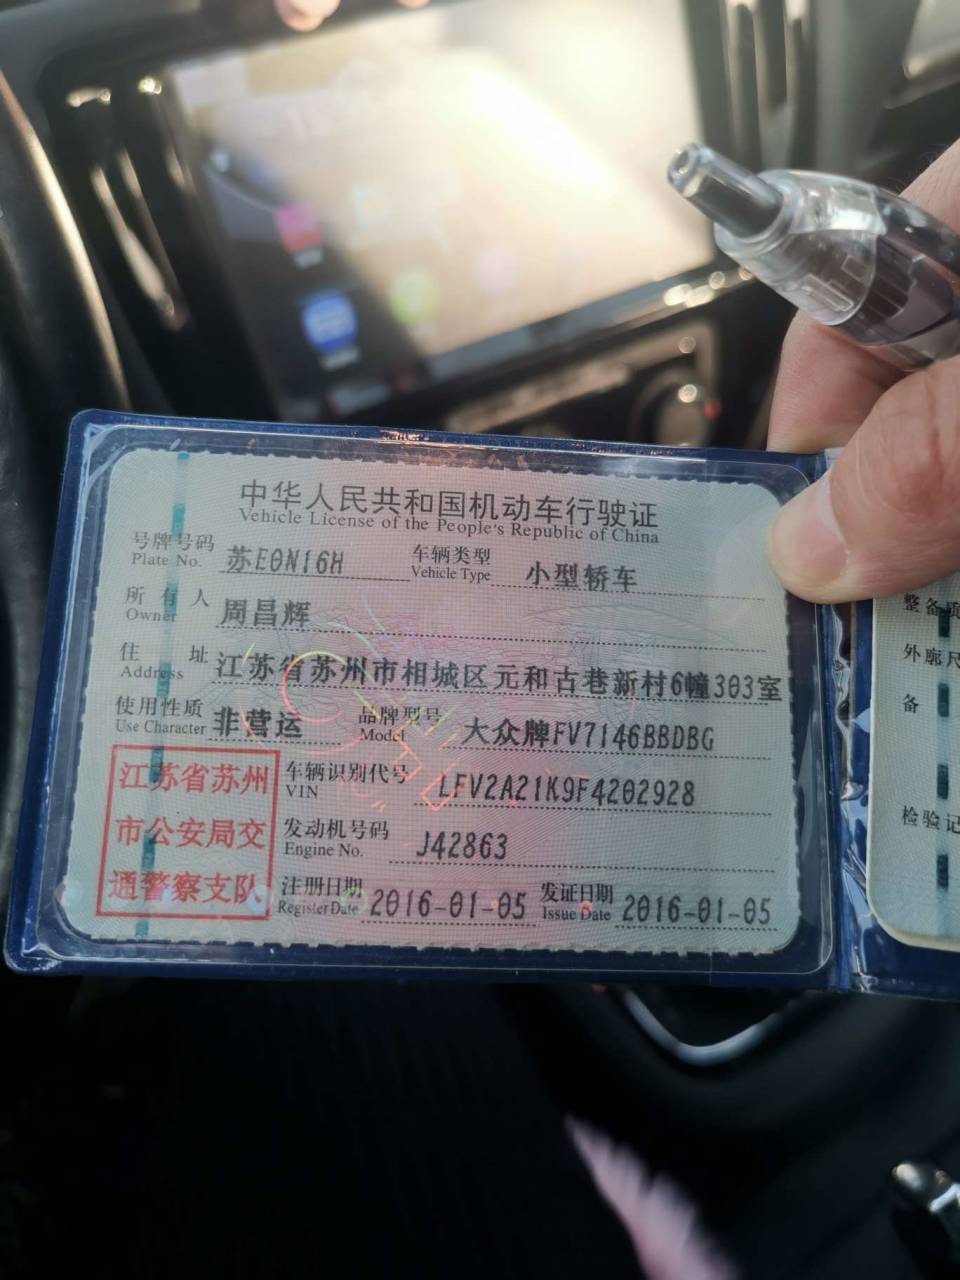 中华人民共和国机动车行驶证
Vehicle License of the People's Republic of China
号牌号码 苏E0N16H 车辆类型 小型轿车
Plate No. Vehicle Type
所有人 周昌辉
Owner
住址 江苏省苏州市相城区元和古巷新村6幢303室
Address
使用性质 非营运 品牌型号 大众牌FV7146BBDBG
Use Character Model
车辆识别代号 LFV2A21K9F4202928
VIN
发动机号码 J42863
Engine No.
注册日期 2016-01-05 发证日期 2016-01-05
Register Date Issue Date
江苏省苏州
市公安局交
通警察支队
整备质
外廓尺
备
检验记